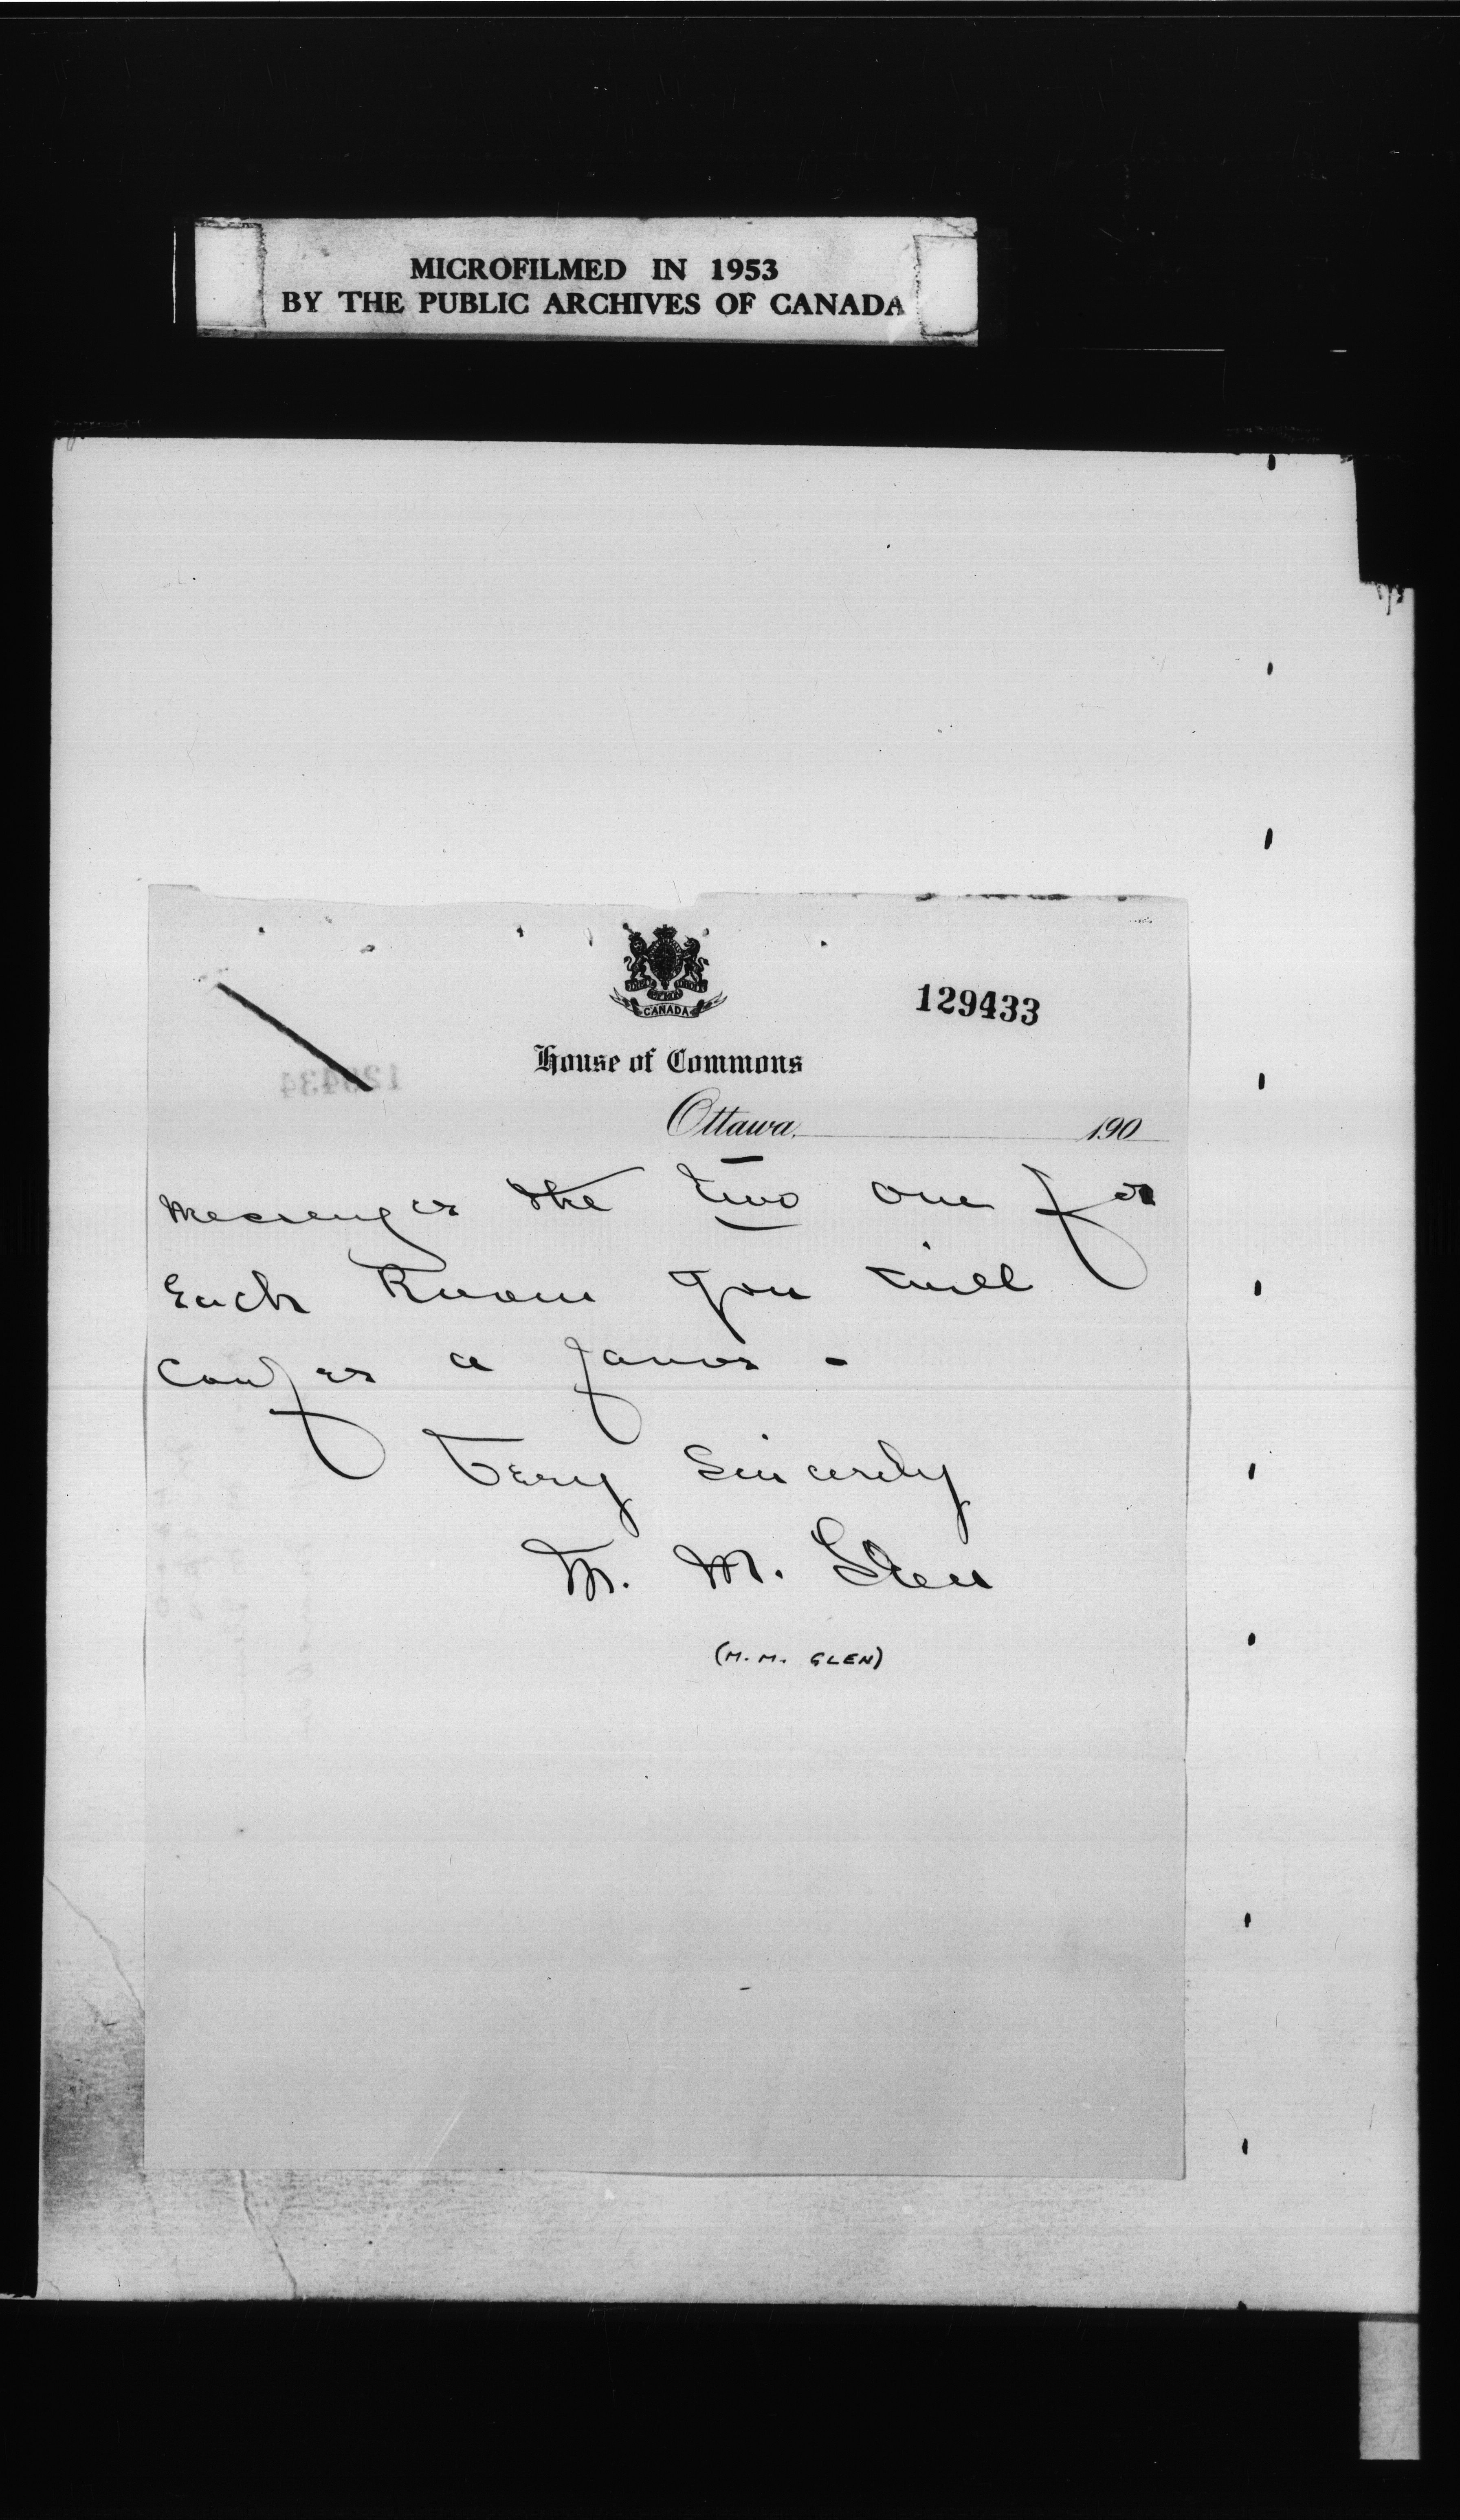 MICROFILMED IN 1953
BY THE PUBLIC ARCHIVES OF CANADA
CANADA
129433
House of Commons
129434
Ottawa, 190
Messenger the two one for
Each Room you will
Confer a favor -
Very Sincerely
M. M. Glen
(M. M. GLEN)